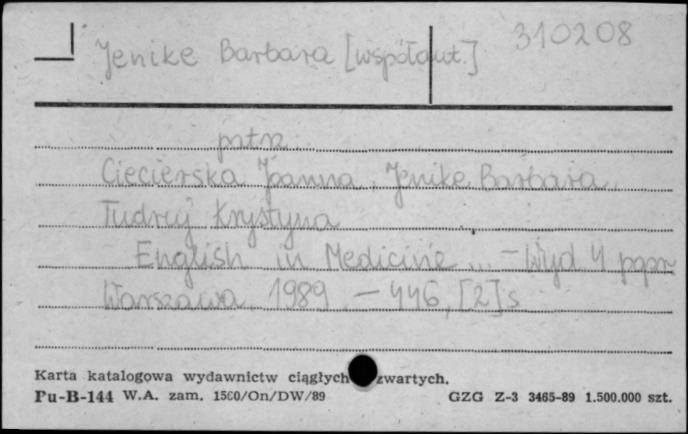 310208
Jenike Barbara [współaut.]
patrz
Ciecierska Joanna, Jenike Barbara,
Tudruj Krystyna
English in Medicine ... - Wyd 4 popr
Warszawa 1989 - 446, [2] s
Karta katalogowa wydawnictw ciągłych zwartych.
Pu-B-144 W.A. zam. 1500/On/DW/89 GZG Z-3 3465-89 1.500.000 szt.